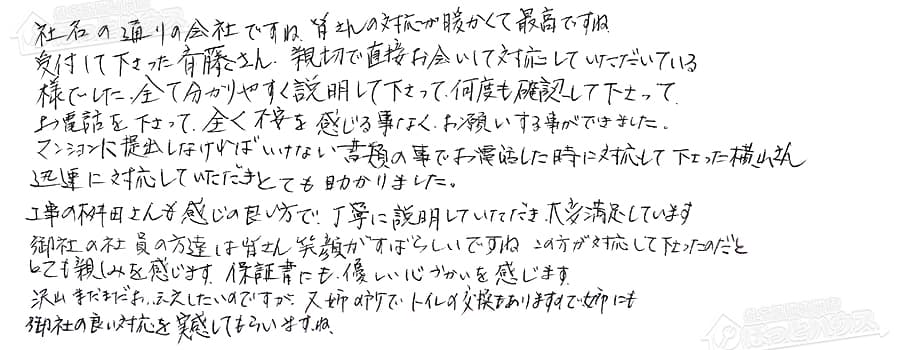 社名の通りの会社ですね。皆さんの対応が暖かくて最高ですね
受付して下さった斉藤さん、親切で直接お会いして対応していただいている
様でした。全て分かりやすく説明して下さって、何度も確認して下さって、
お電話を下さって、全く不安を感じる事なく、お願いする事ができました。
マンションに提出しなければいけない書類の事でお電話した時に対応して下さった横山さん
迅速に対応していただきとても助かりました。
工事の桝田さんも感じの良い方で、丁寧に説明していただき、大変満足しています
御社の社員の方達は皆さん笑顔がすばらしいですね この方が対応して下さったのだと
とても親しみを感じます。保証書にも、優しい心づかいを感じます。
沢山まだまだお伝えしたいのですが、又姉の所でトイレの交換もありますので姉にも
御社の良い対応を実感してもらいますね。